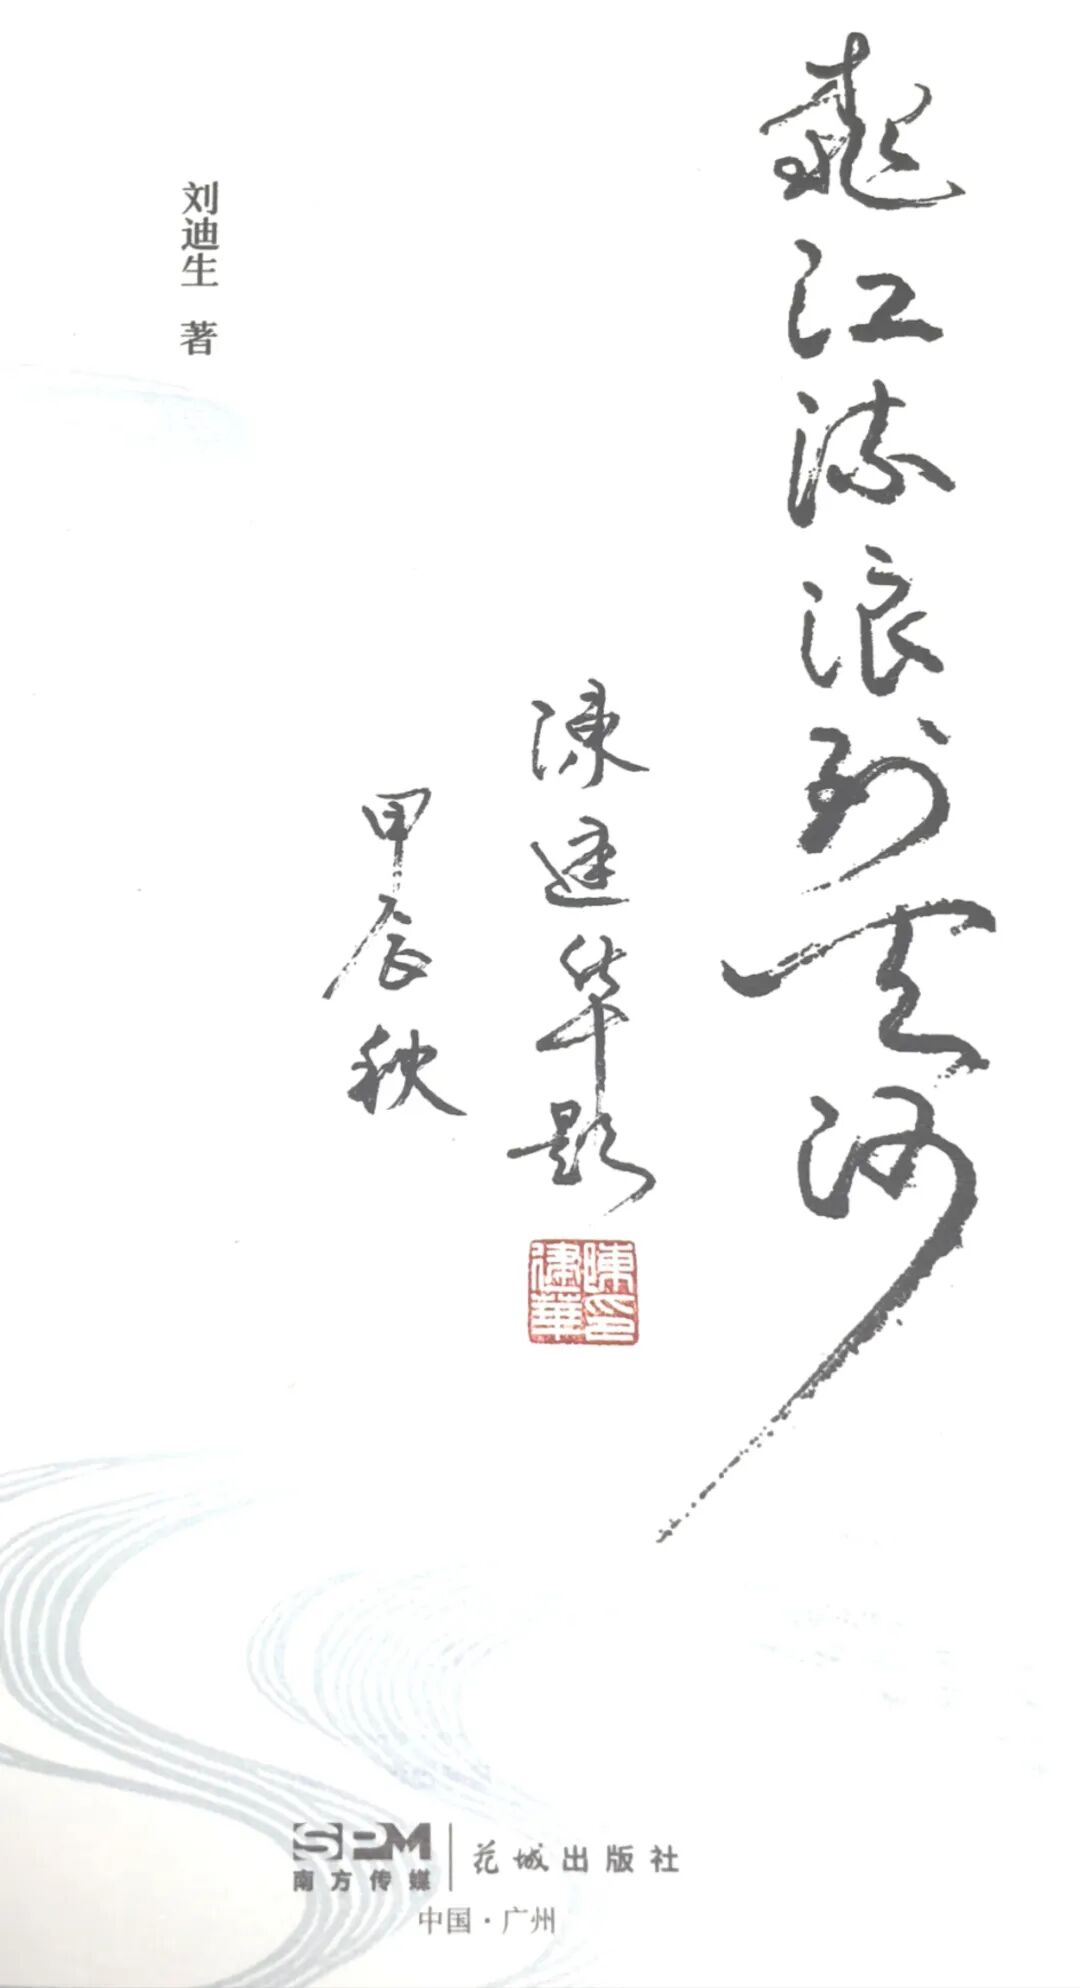 龍江流浪到天河
陳建华题
甲辰秋
陳印
建華
刘迪生 著
SPM
南方传媒
花城出版社
中国·广州